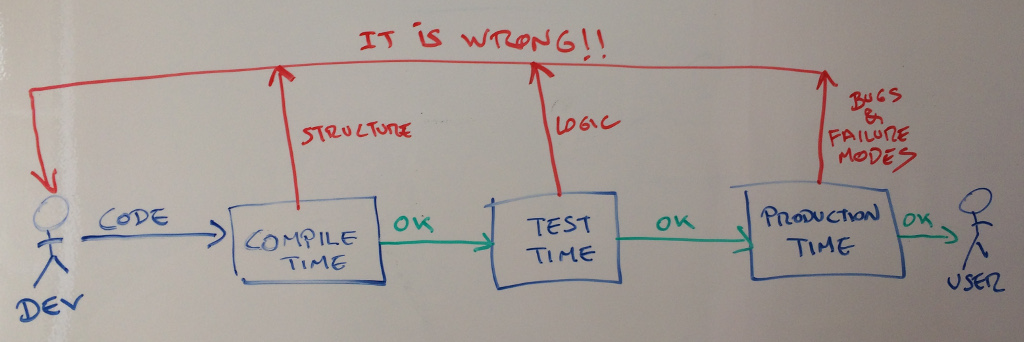 IT IS WRONG!!
STRUCTURE
LOGIC
BUGS
&
FAILURE
MODES
CODE
COMPILE
TIME
OK
TEST
TIME
OK
PRODUCTION
TIME
OK
DEV
USER